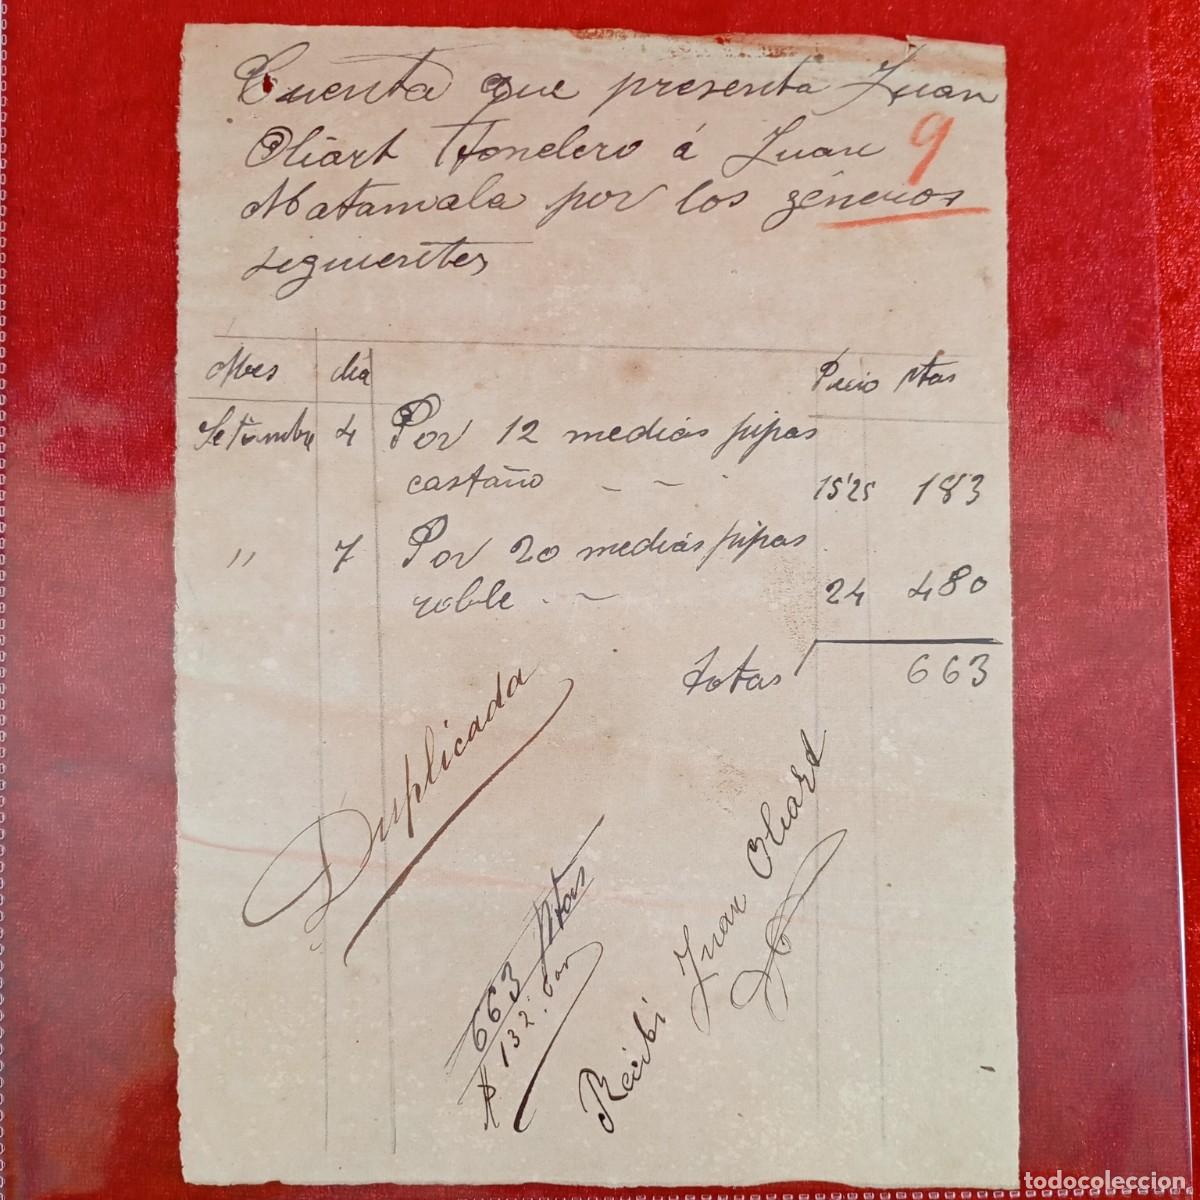 Cuenta que presenta Juan
Oliart Tonelero á Juan 9
Matamala por los géneros
siguientes
Mes dia Precio Ptas
Setembre 4 Por 12 medias pipas
castaño - - . 15'25 183
" 7 Por 20 medias pipas
roble . - 24 480
Total 663
Duplicada
663 Ptas
$ 132'60
Recibí Juan Oliart
todocoleccion